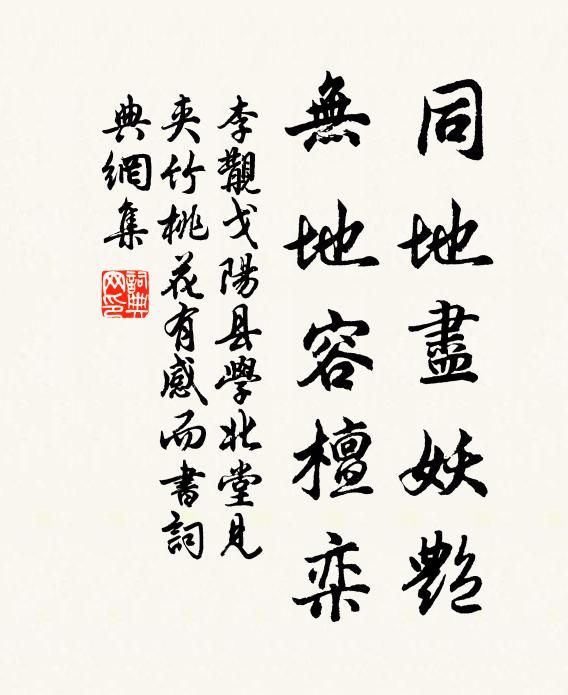 同地盡妖艷
無地容檀栾
李觀戈陽县學北堂見
夹竹桃花有感而書詞
典網集
詞典网印